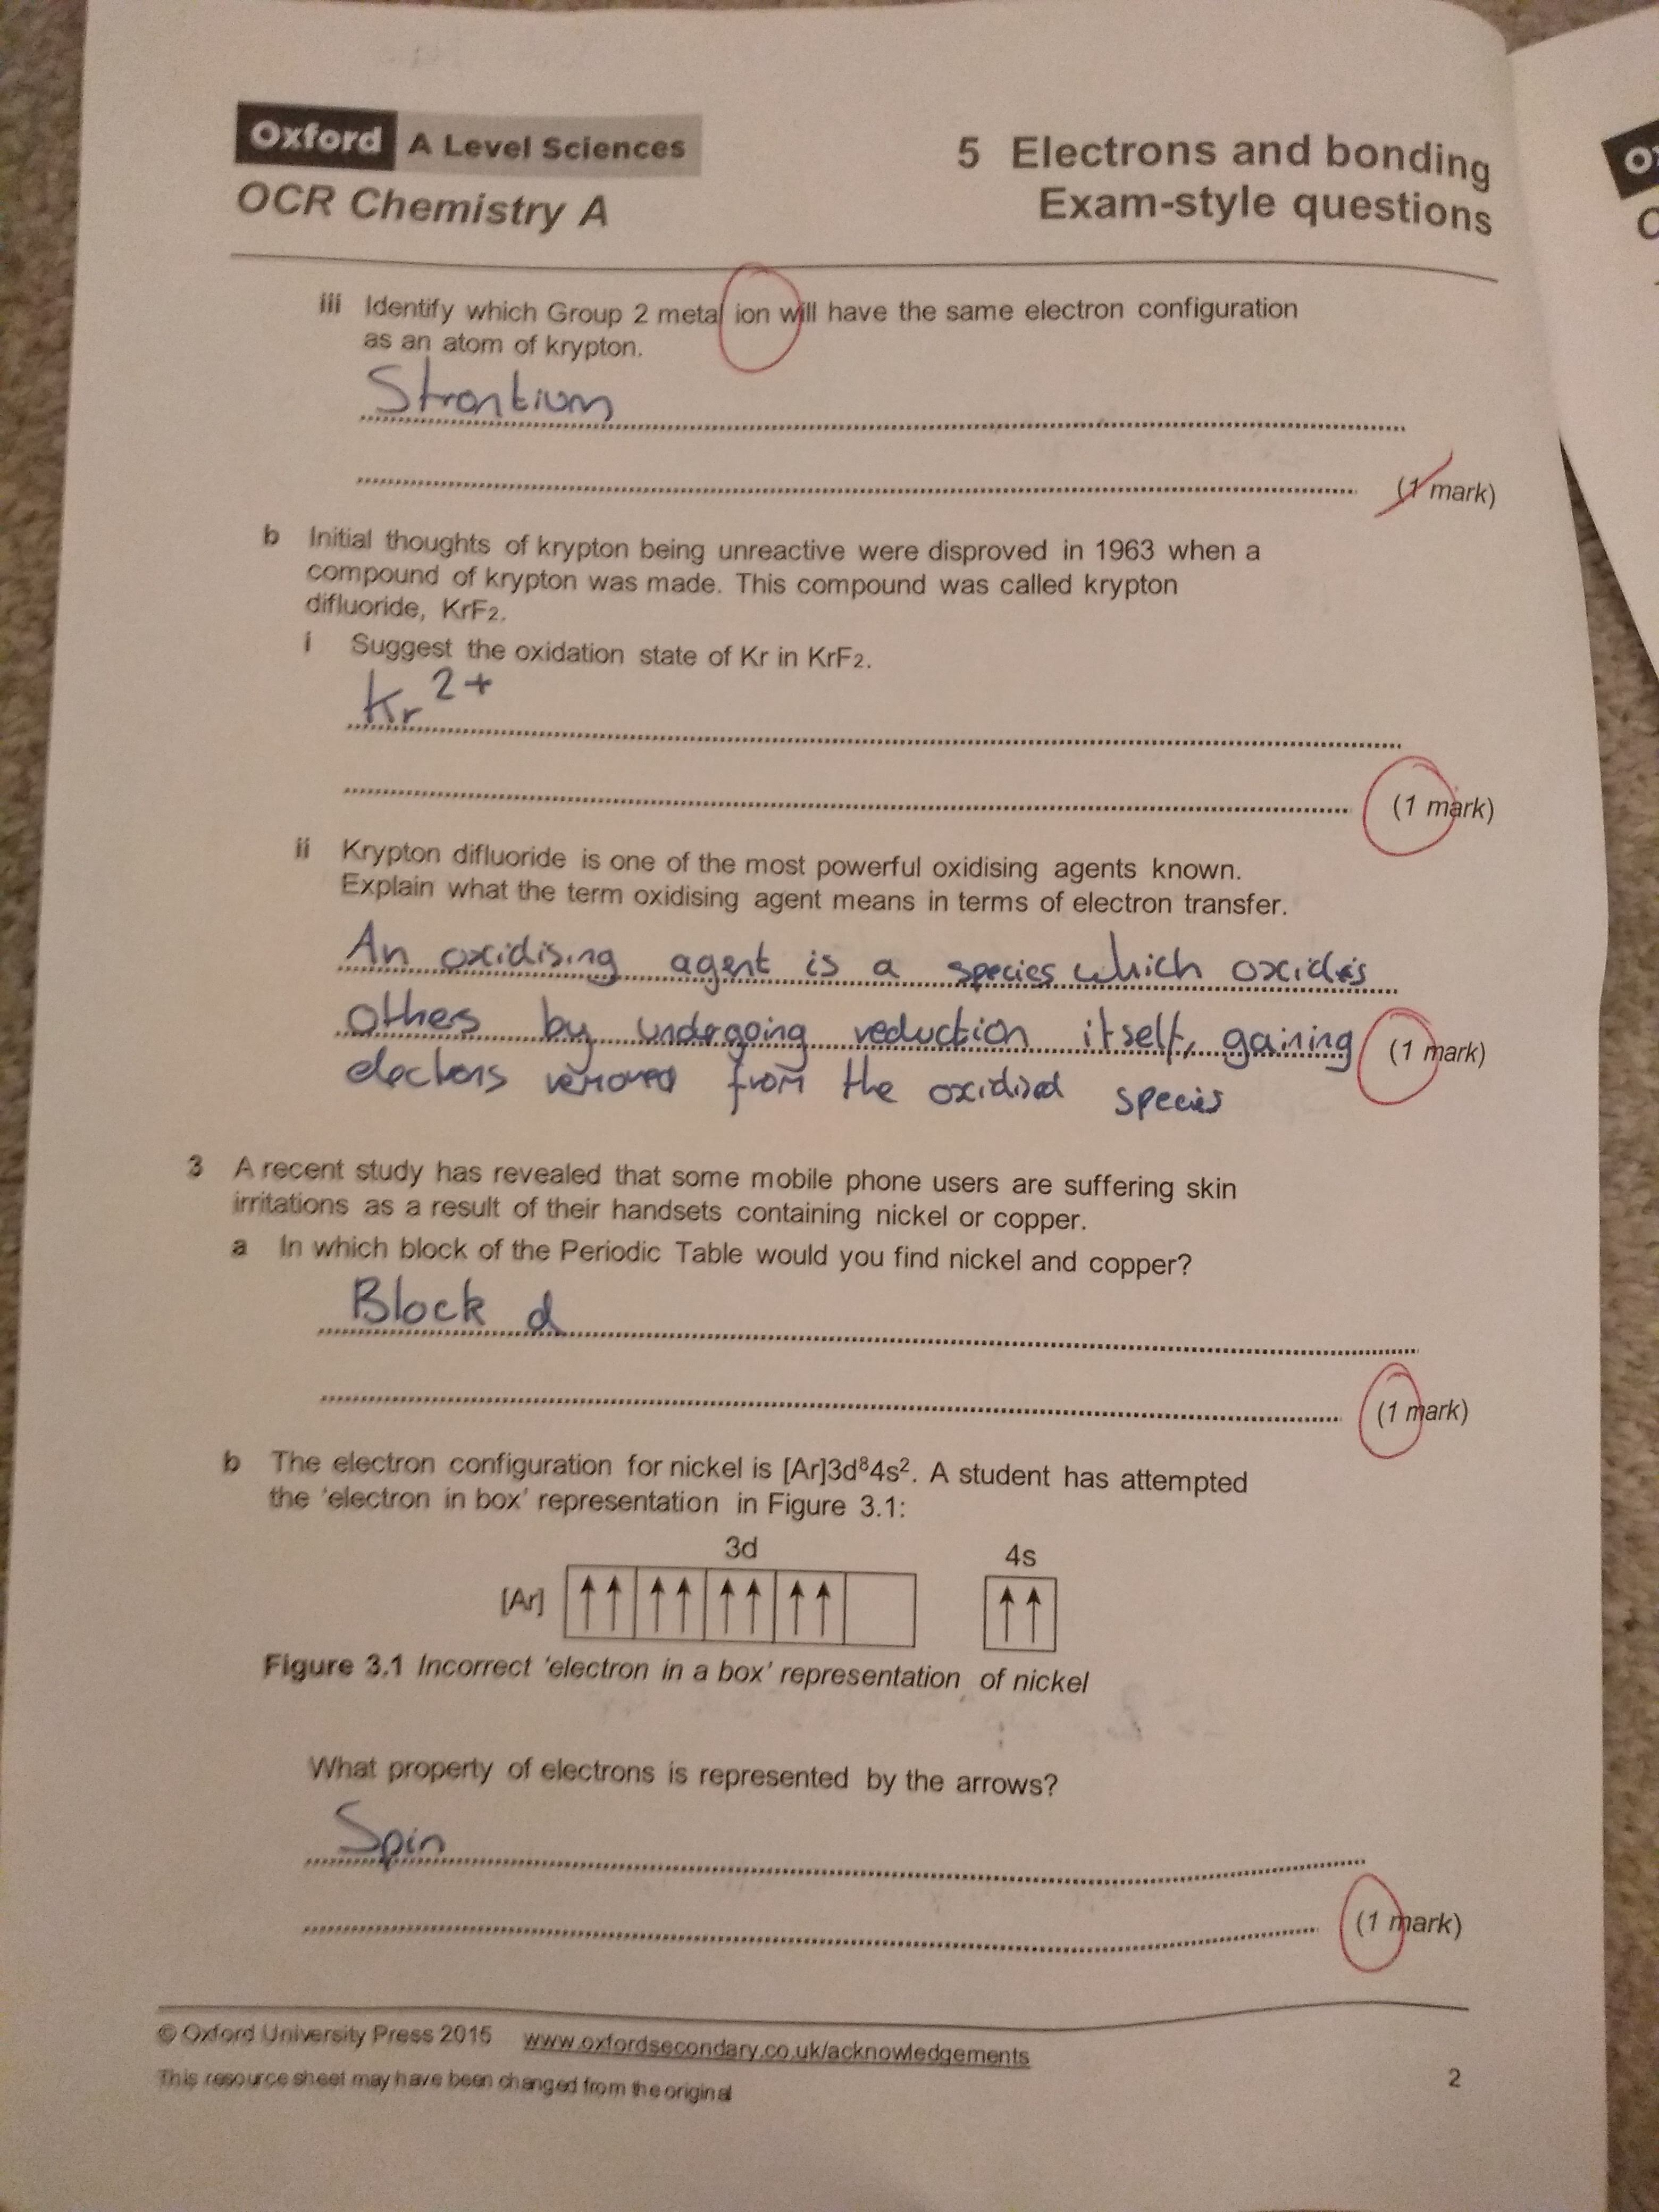 Oxford A Level Sciences
OCR Chemistry A
5 Electrons and bonding
Exam-style questions
iii Identify which Group 2 metal ion will have the same electron configuration
as an atom of krypton.
Strontium
(1 mark)
b Initial thoughts of krypton being unreactive were disproved in 1963 when a
compound of krypton was made. This compound was called krypton
difluoride, KrF₂.
i Suggest the oxidation state of Kr in KrF₂.
Kr²⁺
(1 mark)
ii Krypton difluoride is one of the most powerful oxidising agents known.
Explain what the term oxidising agent means in terms of electron transfer.
An oxidising agent is a species which
others by undergoing reduction itself, gaining (1 mark)
electrons removed from the oxidised species
3 A recent study has revealed that some mobile phone users are suffering skin
irritations as a result of their handsets containing nickel or copper.
a In which block of the Periodic Table would you find nickel and copper?
Block d
(1 mark)
b The electron configuration for nickel is [Ar]3d⁸4s². A student has attempted
the 'electron in box' representation in Figure 3.1:
3d 4s
[Ar]
Figure 3.1 Incorrect 'electron in a box' representation of nickel
What property of electrons is represented by the arrows?
Spin
(1 mark)
© Oxford University Press 2015 www.oxfordsecondary.co.uk/acknowledgements
This resource sheet may have been changed from the original
2